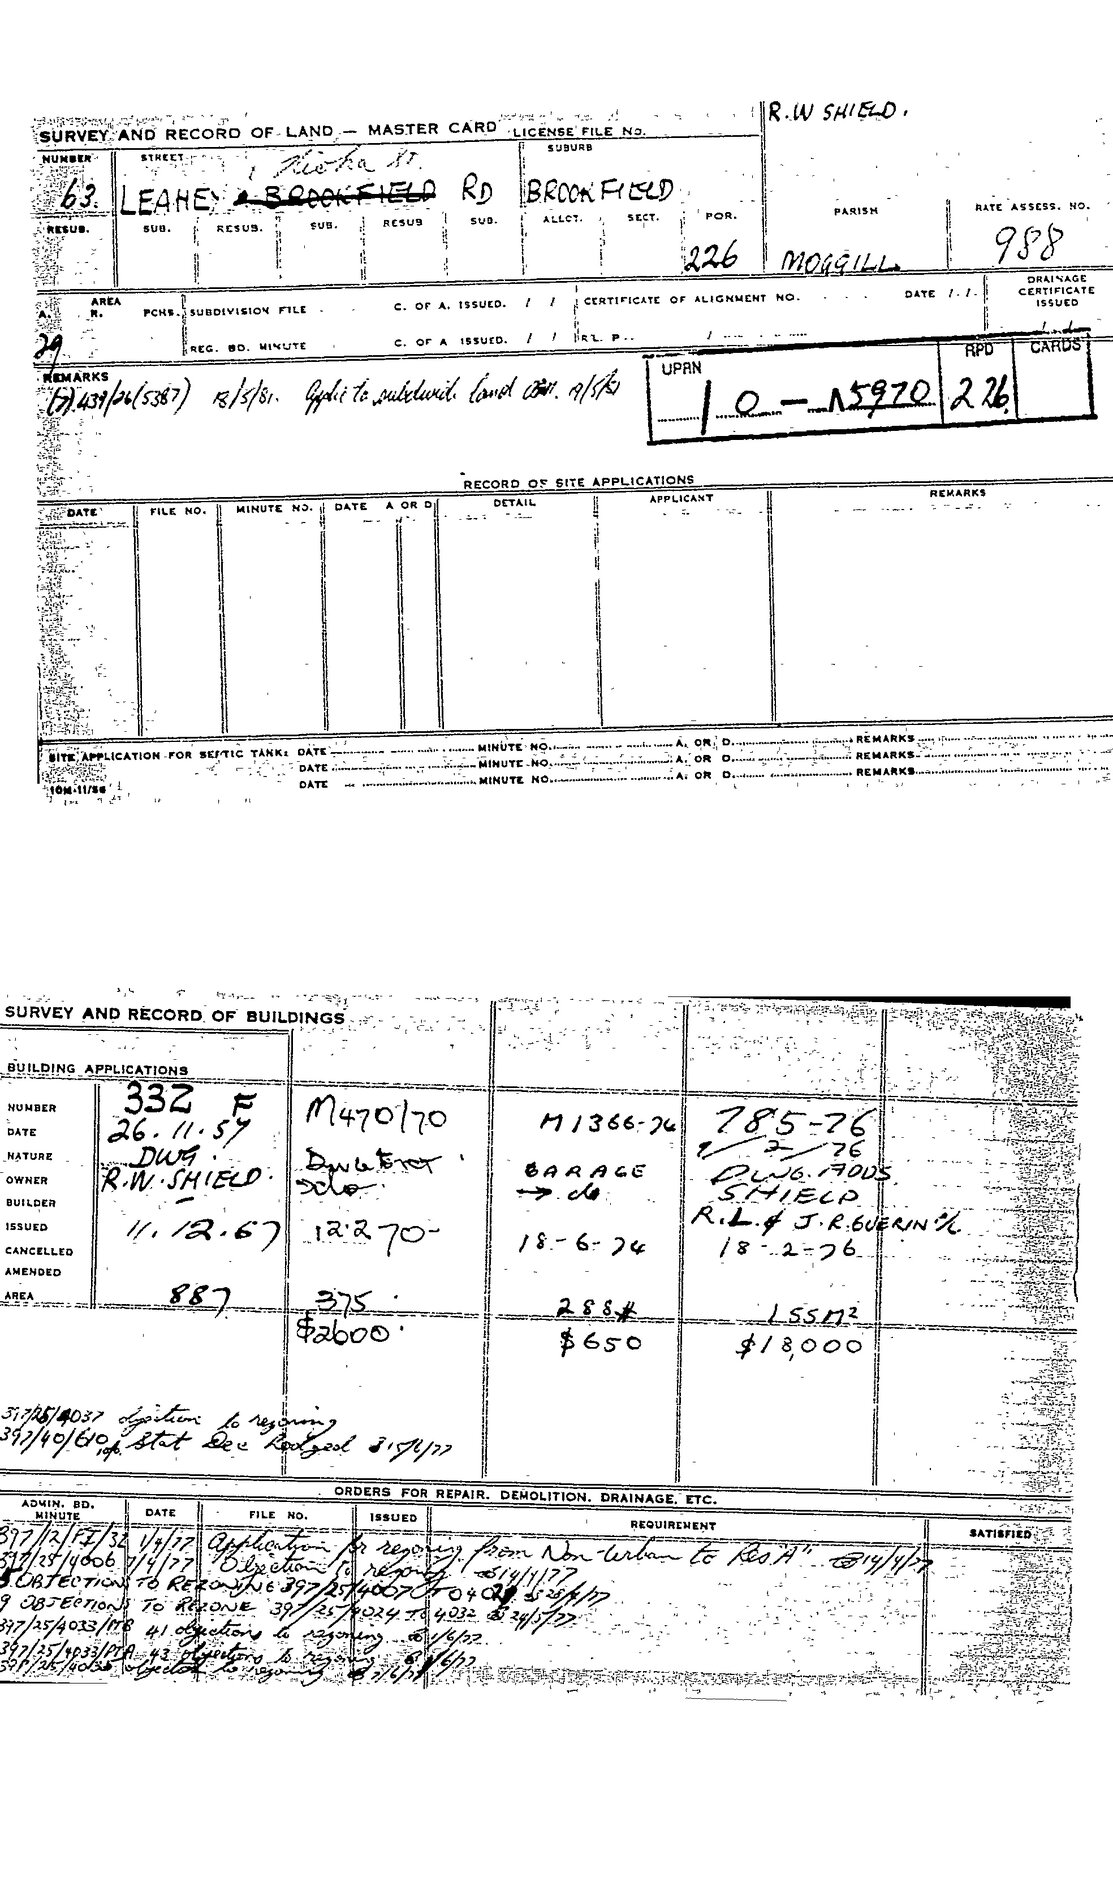 R.W SHIELD.
SURVEY AND RECORD OF LAND — MASTER CARD LICENSE FILE NO.
NUMBER STREET SUBURB
63. LEAHEY BROOKFIELD RD BROOKFIELD
RESUB. SUB. RESUB. SUB. RESUB SUB. ALLCT. SECT. POR. PARISH RATE ASSESS. NO.
226 MOGGILL 988
AREA
A. R. PCHS. SUBDIVISION FILE C. OF A. ISSUED. / / CERTIFICATE OF ALIGNMENT NO. DATE / / DRAINAGE CERTIFICATE ISSUED
29 REG. BD. MINUTE C. OF A ISSUED. / / R.L. P.. / / /
REMARKS
(7) 439/26(5387) 13/5/81. Applic to subdivide land
UPRN RPD CARDS
10 — 15970 226
RECORD OF SITE APPLICATIONS
DATE FILE NO. MINUTE NO. DATE A OR D DETAIL APPLICANT REMARKS
SITE APPLICATION FOR SEPTIC TANK: DATE MINUTE NO. A. OR D. REMARKS
DATE MINUTE NO. A. OR D. REMARKS
DATE MINUTE NO. A. OR D. REMARKS
10M-11/56
SURVEY AND RECORD OF BUILDINGS
BUILDING APPLICATIONS
NUMBER 332 F M470/70 M1366-74 785-76
DATE 26.11.57 9/2/76
NATURE DWG. GARAGE DWG. ADDS
OWNER R.W. SHIELD. → do → do SHIELD
BUILDER — R.L. & J.R. GUERIN
ISSUED 11.12.67 12.2.70- 18-6-74 18-2-76
CANCELLED
AMENDED
AREA 887 375 288# 155M²
$2600 $650 $18,000
397/25/4037 objection to rezoning
397/40/610 Stat Dec Lodged
ORDERS FOR REPAIR. DEMOLITION. DRAINAGE. ETC.
ADMIN. BD. MINUTE DATE FILE NO. ISSUED REQUIREMENT SATISFIED
397/12/FI/32 1/4/77 Application for rezoning from Non-Urban to Res "A" 14/4/77
397/25/4006 7/4/77 Objection to rezoning 14/4/77
OBJECTION TO REZONING 397/25/4007 TO 28/4/77
9 OBJECTIONS TO REZONE 397/25/4024 TO 4032 24/5/77
397/25/4033/PTB 41 objections to rezoning 1/6/77
397/25/4033/PTA 43 objections to rezoning 1/6/77
objection to rezoning 7/6/77